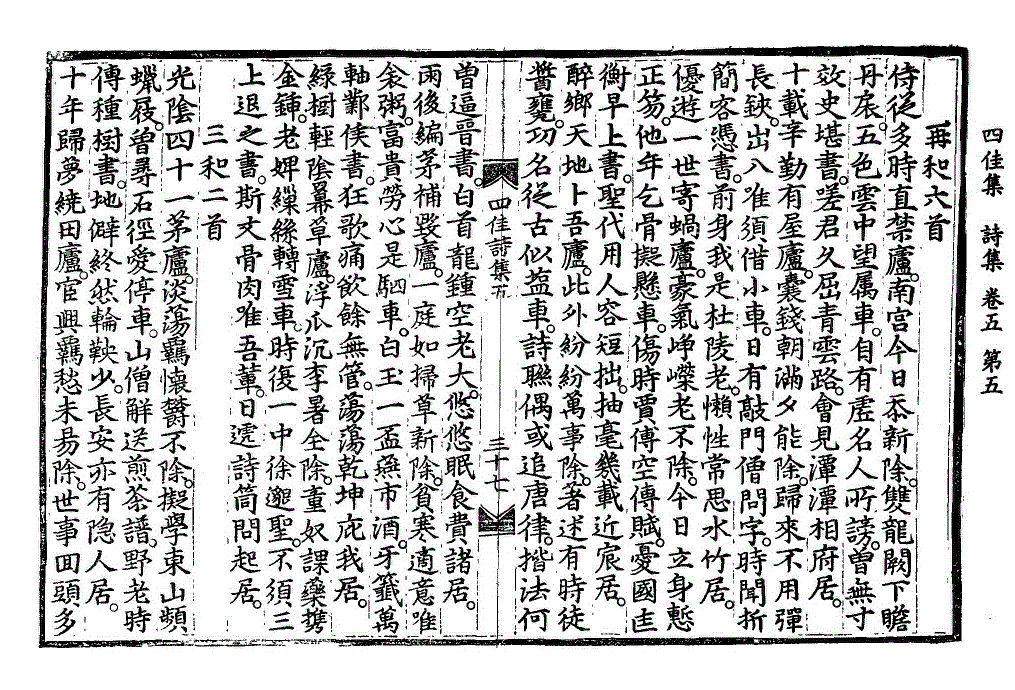 四佳集　詩集　卷五　第五
再和六首
侍從多時直禁廬。南宮今日忝新除。雙龍闕下瞻
丹扆。五色雲中望属車。自有虛名人所謗。曽無寸
效史堪書。嗟君久屈青雲路。會見潭潭相府居。
十載辛勤有屋廬。囊錢朝滿夕能除。歸來不用彈
長鋏。出入唯須借小車。日有敲門僧問字。時聞折
簡客憑書。前身我是杜陵老。懶性常思水竹居。
優遊一世寄蝸廬。豪氣崢嶸老不除。今日立身慙
正笏。他年乞骨擬懸車。傷時賈傅空傳賦。憂國匡
衡早上書。聖代用人容短拙。抽毫幾載近宸居。
醉鄉天地卜吾廬。此外紛紛萬事除。著述有時徒
醬甕。功名從古似盆車。詩聯偶或追唐律。揩法何
曽逼晋書。白首龍鍾空老大。悠悠眠食費諸居。
雨後編茅補毀廬。一庭如掃草新除。貧寒適意唯
衾粥。富貴勞心是駟車。白玉一盃燕市酒。牙籤萬
軸鄴侯書。狂歌痛飲餘無管。蕩蕩乾坤庇我居。
綠樹輕陰羃草廬。浮瓜沉李暑全除。童奴課藥携
金鍾。老婢繅絲轉雪車。時復一中徐邈聖。不須三
上退之書。斯文骨肉唯吾輩。日遞詩筒問起居。
三和二首
光陰四十一茅廬。淡蕩羈懷欝不除。擬學東山頻
蠟屐。曽尋石徑愛停車。山僧解送煎茶譜。野老時
傳種樹書。地僻終然輪鞅少。長安亦有隐人居。
十年歸夢繞田廬。宦興羈愁未易除。世事回頭多
四佳詩集五
三十七